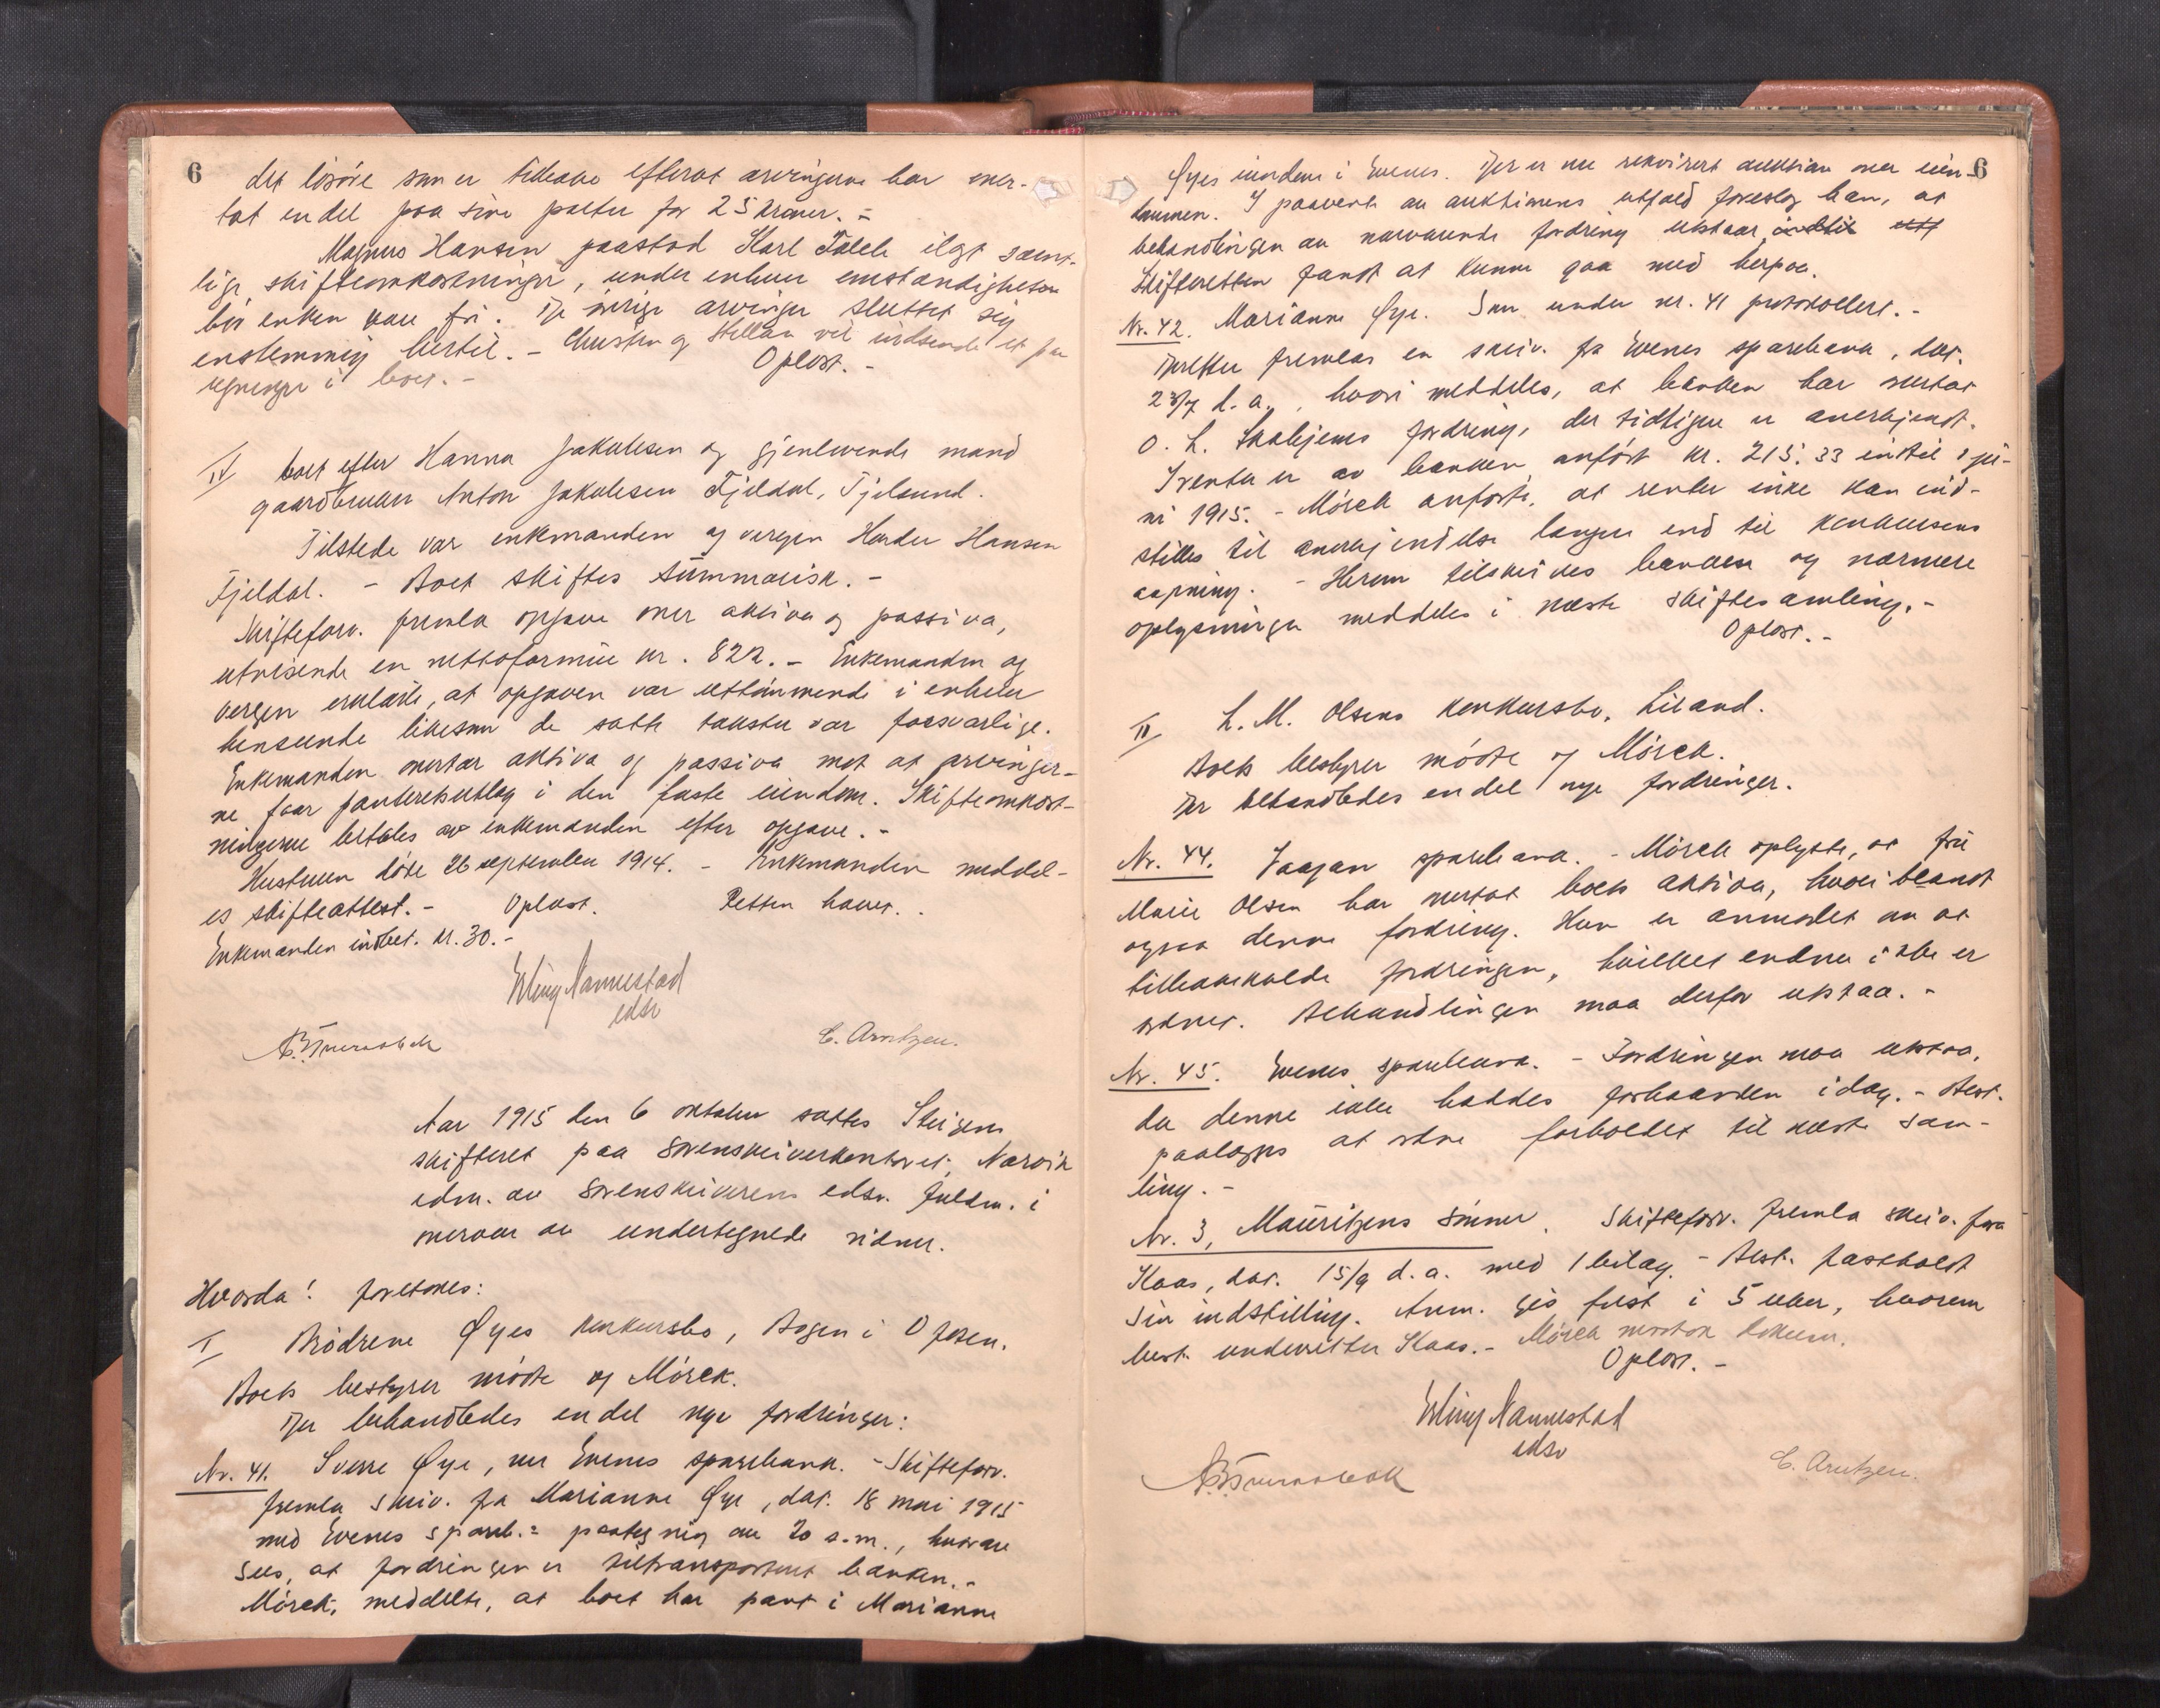 6
det lösöre som er tilbake efterat arvingerne har over-
tat en del paa sine parter for 25 kroner. -
Magnus Hansen paastod Karl ilagt samt-
lige skifteomkostninger, under enhver omstændigheter
bör enken være fri. De övrige arvinger sluttet sig
enstemmig hertil. - og vil indsende et par
regninger i boet. -
Oplæst. -
IV boet efter Hanna Jakobsen og gjenlevende mand
gaardbruker Anton Jakobsen Fjeldal, Tjelsund.
Tilstede var enkemanden og vergen Hansen
Fjeldal. - Boet skiftes summarisk. -
Skifteforv. fremla opgave over aktiva og passiva,
utvisende en nettoformue kr. 822. - Enkemanden og
vergen erklærte, at opgaven var uttömmende i enhver
henseende likesom de satte takster var forsvarlige.
Enkemanden overtar aktiva og passiva mot at arvinger-
ne faar panteretsutlæg i den faste eiendom. Skifteomkost-
ningerne betales av enkemanden efter opgave. -
Hustruen döde 26 september 1914. - Enkemanden meddel-
es skifteattest. - Oplæst. Retten hævet. -
Enkemanden indbet. kr. 30. -
Erling Nannestad
edsv
C. Arntzen.
Aar 1915 den 6 oktober sattes Steigens
skifteret paa sorenskriverkontoret, Narvik
adm. av sorenskriverens edsv. fuldm. i
nærvær av undertegnede vidner.
Hvorda! foretokes:
I Brödrene Øyes konkursbo, Bogen i Ofoten.
Boets bestyrer mötte og Mörck.
Der behandledes en del nye fordringer:
Nr. 41. Sverre Øye, nu Evenes sparebank. - Skifteforv.
fremla skriv. fra Marianne Øye, dat. 18 mai 1915
med Evenes spareb.s paategning av 20 s.m., hvorav
sees, at fordringen er tiltransportert banken. -
Mörck, meddelte, at boet har pant i Marianne
6
Øyes eiendom i Evenes. Der er nu rekvirert auktion over eien-
dommen. I paavente av auktionens utfald foreslog han, at
behandlingen av nærværende fordring utstaar, indtil utf
Skifteretten fandt at kunne gaa med herpaa.
Nr. 42. Marianne Øye. Som under nr. 41 protokollert. -
Derefter fremlas en skriv. fra Evenes sparebank, dat.
23/7 d. a., hvori meddeles, at banken har overtat
O. L. Skobjems fordring, der tidligere er anerkjendt.
I renter er av banken anfört kr. 215.33 indtil 1 ju-
ni 1915. - Mörck anförte, at renter ikke kan ind-
stilles til anerkjendelse længere end til konkursens
aapning. - Herom tilskrives banken og nærmere
oplysninger meddeles i næste skiftesamling. -
Oplæst. -
II L. M. Olsens konkursbo, Liland.
Boets bestyrer mötte og Mörck.
Der behandledes en del nye fordringer.
Nr. 44. Vaagan sparebank. - Mörck oplyste, at fru
Marie Olsen har overtat boets aktiva, hvoriblandt
ogsaa denne fordring. Hun er anmodet om at
tilbakekalde fordringen, hvilket endnu ikke er
ordnet. Behandlingen maa derfor utstaa. -
Nr. 45. Evenes sparebank. - Fordringen maa utstaa,
da denne ikke haddes forhaanden idag. - Best.
paalægges at ordne forholdet til næste sam-
ling. -
Nr. 3, Mauritzens sönner. Skifteforv. fremla skriv. fra
Kaas, dat. 15/9 d.a. med 1 bilag. - Best. fastholdt
sin indstilling. Anm. gis frist i 5 uker, hvorom
best. underretter Kaas. - Mörck mottok dokum.
Oplæst. -
Erling Nannestad
edsv
C. Arntzen.